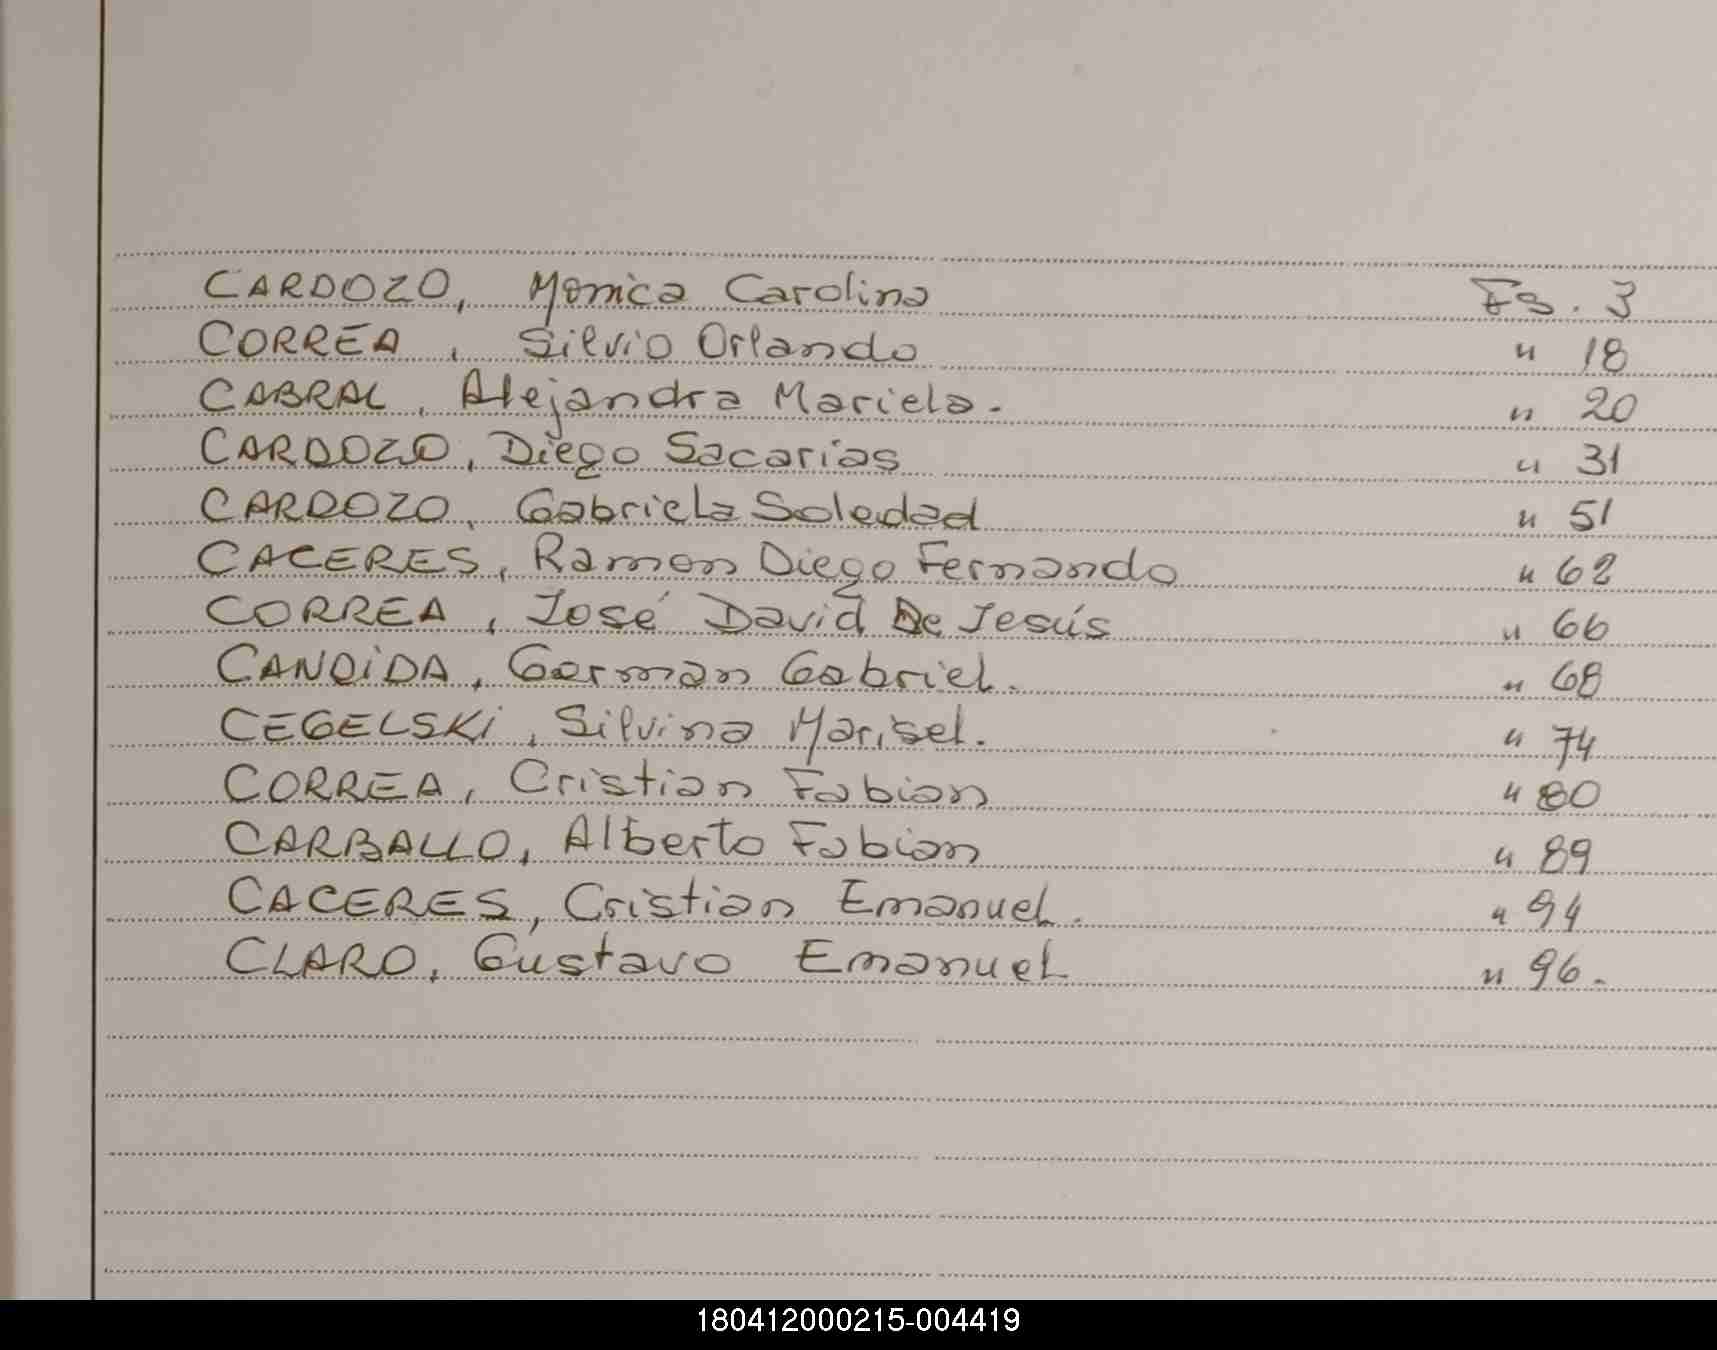 CARDOZO, Monica Carolina Fs. 3
CORREA, Silvio Orlando " 18
CABRAL, Alejandra Mariela. " 20
CARDOZO, Diego Sacarias " 31
CARDOZO, Gabriela Soledad " 51
CACERES, Ramon Diego Fernando " 62
CORREA, José David De Jesús " 66
CANDiDA, German Gabriel. " 68
CEGELSKi, Silvina Marisel. " 74
CORREA, Cristian Fabian " 80
CARBALLO, Alberto Fabian " 89
CACERES, Cristian Emanuel. " 94
CLARO, Gustavo Emanuel " 96.
180412000215-004419